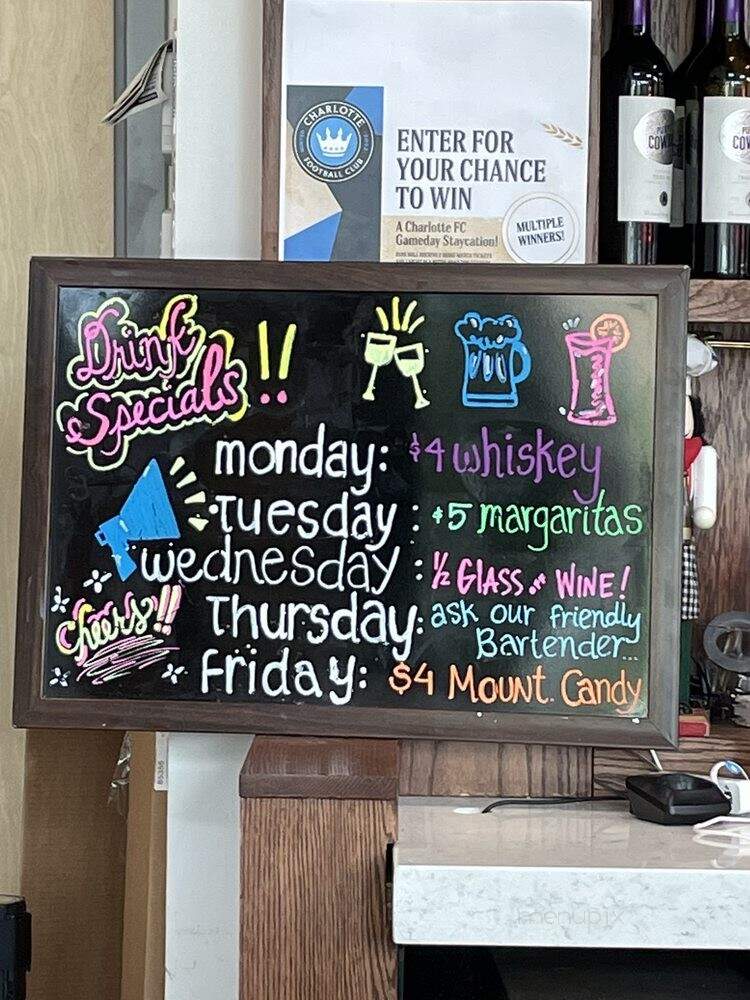 CHARLOTTE
FOOTBALL CLUB
ENTER FOR
YOUR CHANCE
TO WIN
A Charlotte FC
Gameday Staycation!
MULTIPLE
WINNERS!
COW
Drink
Specials!!
monday: $4 whiskey
Tuesday: $5 margaritas
wednesday: ½ GLASS OF WINE!
Thursday: ask our friendly
Bartender...
friday: $4 Mount. Candy
cheers!!
85356
menupix